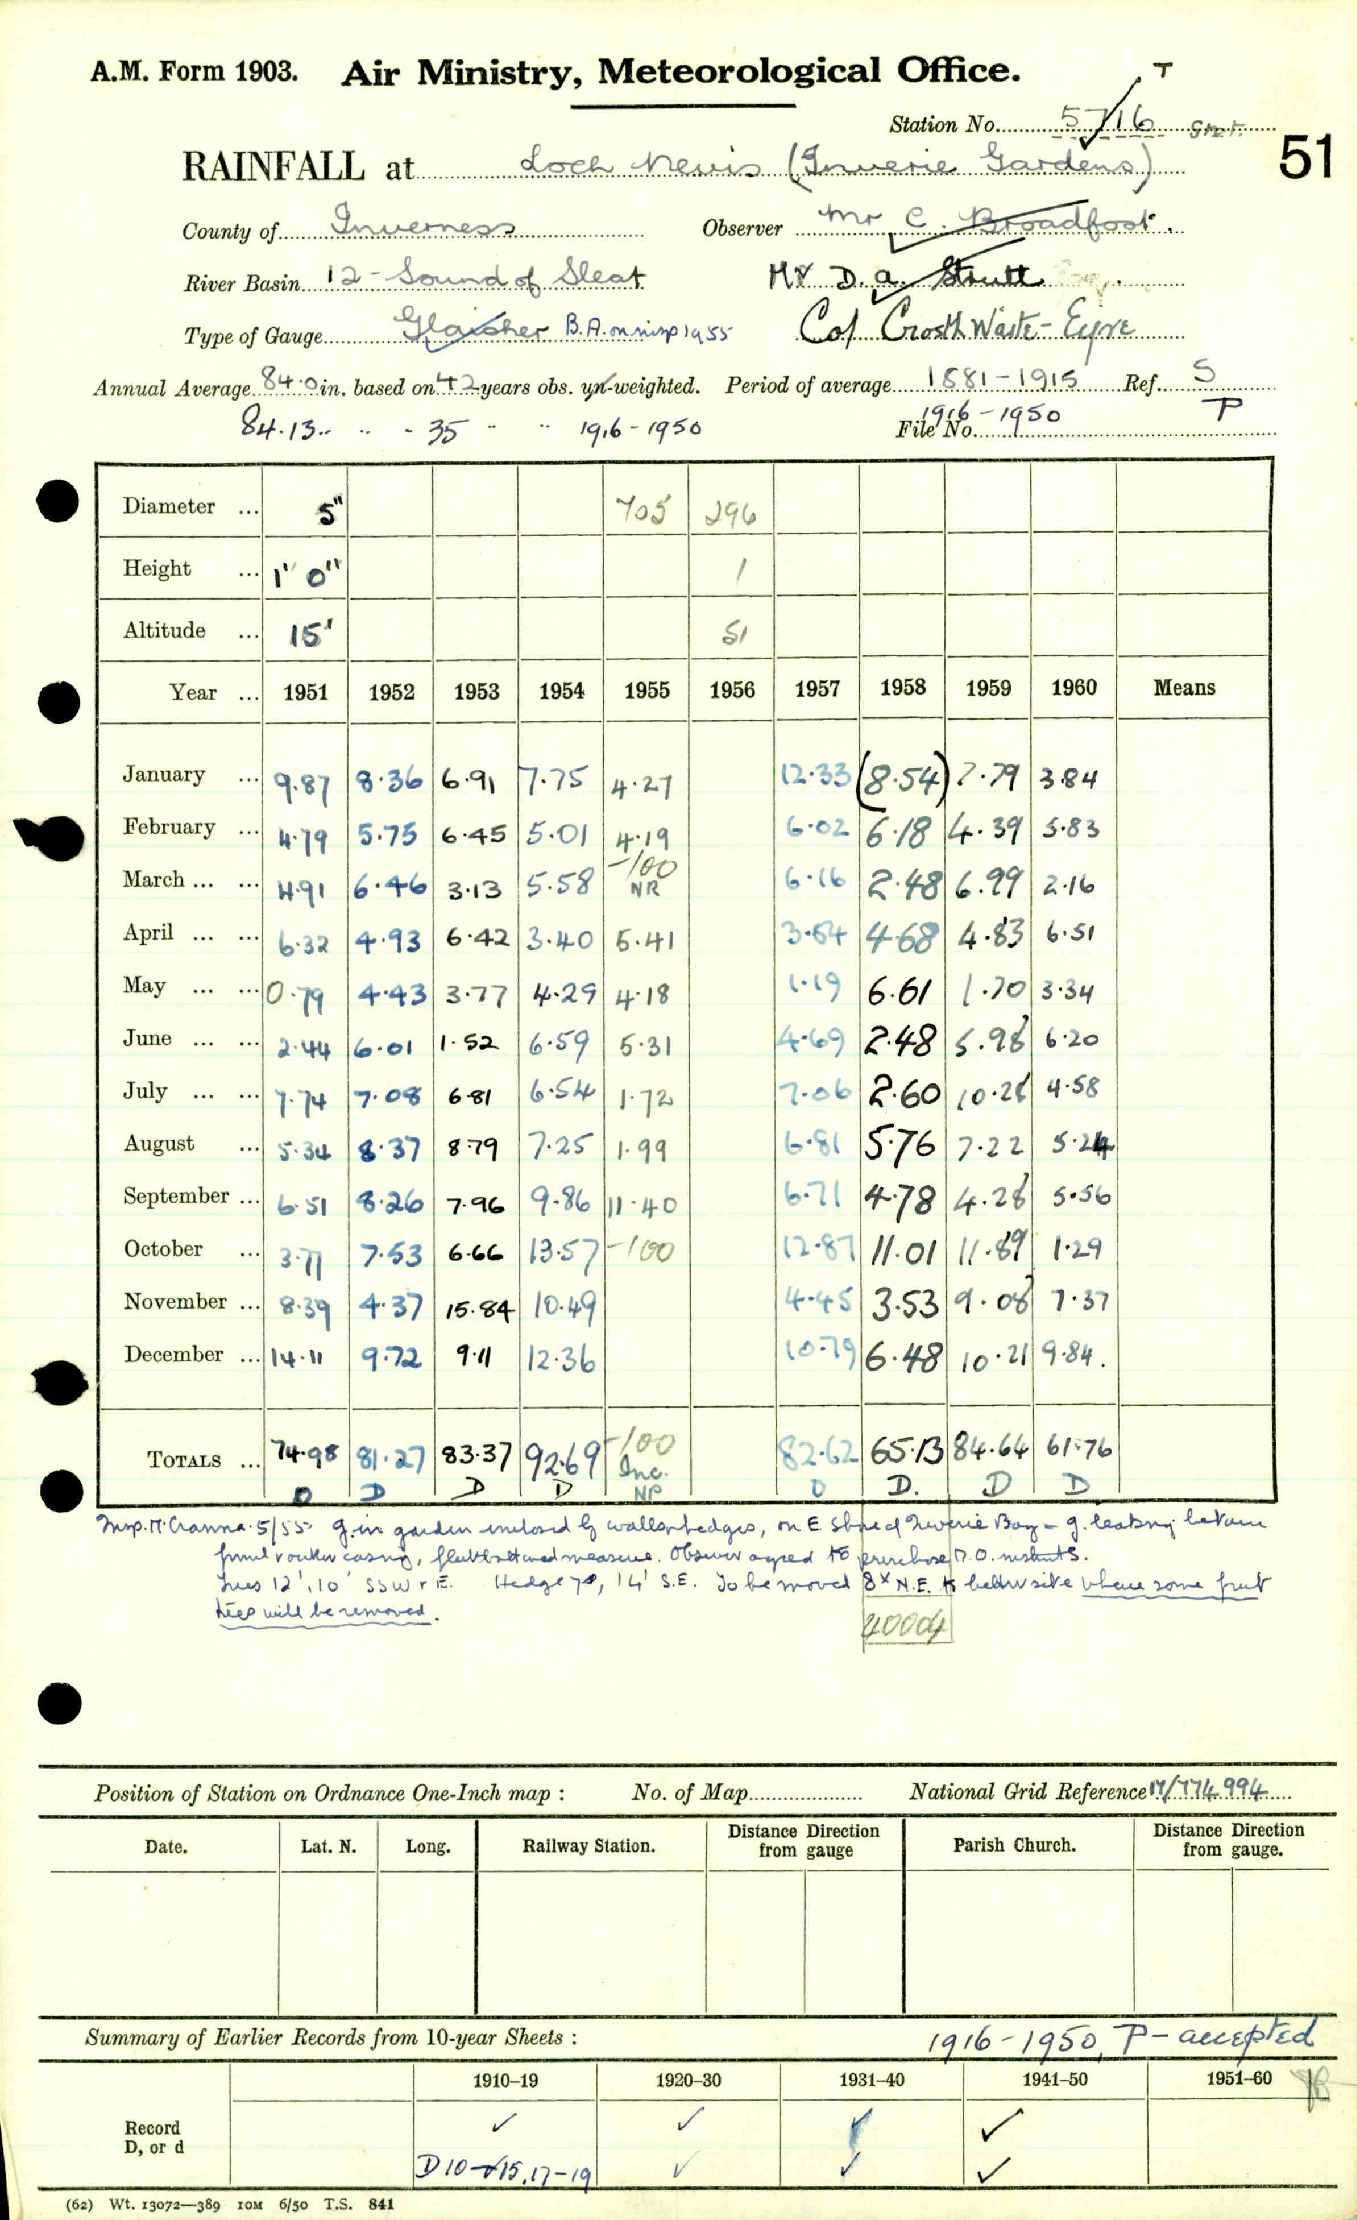 A.M. Form 1903. Air Ministry, Meteorological Office. T
Station No. 5716
RAINFALL at Loch Nevis (Inverie Gardens) 51
County of Inverness Observer Mr C. Broadfoot.
River Basin 12 - Sound of Sleat Mr D. A. Strutt
Type of Gauge Glaisher B.A. on insp 1955 Col Crosth Waite-Eyre
Annual Average 84.0 in. based on 42 years obs. un-weighted. Period of average 1881-1915 Ref. S
84.13 .. .. - 35 " " 1916-1950 File No. 1916-1950 P
Diameter ... 5" 705 296
Height ... 1' 0" 1
Altitude ... 15' 51
Year ... 1951 1952 1953 1954 1955 1956 1957 1958 1959 1960 Means
January ... 9.87 8.36 6.91 7.75 4.27 12.33 (8.54) 7.79 3.84
February ... 4.79 5.75 6.45 5.01 4.19 6.02 6.18 4.39 5.83
March ... ... 4.91 6.46 3.13 5.58 -100 NR 6.16 2.48 6.99 2.16
April ... ... 6.32 4.93 6.42 3.40 5.41 3.54 4.68 4.83 6.51
May ... ... 0.79 4.43 3.77 4.29 4.18 1.19 6.61 1.70 3.34
June ... ... 2.44 6.01 1.52 6.59 5.31 4.69 2.48 5.98 6.20
July ... ... 7.74 7.08 6.81 6.54 1.72 7.06 2.60 10.28 4.58
August ... 5.34 8.37 8.79 7.25 1.99 6.81 5.76 7.22 5.24
September ... 6.51 8.26 7.96 9.86 11.40 6.71 4.78 4.28 5.56
October ... 3.77 7.53 6.66 13.57 -100 12.87 11.01 11.89 1.29
November ... 8.39 4.37 15.84 10.49 4.45 3.53 9.08 7.37
December ... 14.11 9.72 9.11 12.36 10.79 6.48 10.21 9.84.
TOTALS ... 74.98 81.27 83.37 92.69 -100 Inc. 82.62 65.13 84.64 61.76
D D D D NP D D. D D
Insp. M. Cranna 5/55 g. in garden enclosed by walls & hedges, on E shore of Inverie Bay - g. leaking between
funnel & outer casing, flat bottomed measure. Observer agreed to purchase M.O. instruments.
Trees 12', 10' SSW & E. Hedge 14' S.E. To be moved 8x N.E. to better site where some fruit
trees will be removed.
40004
Position of Station on Ordnance One-Inch map : No. of Map National Grid Reference 17/774 994
Date. Lat. N. Long. Railway Station. Distance from Direction gauge Parish Church. Distance from Direction gauge.
Summary of Earlier Records from 10-year Sheets : 1916-1950, P - accepted
1910–19 1920–30 1931–40 1941–50 1951–60
Record ✓ ✓ ✓ ✓
D, or d D10-15, 17-19 ✓ ✓ ✓
(62) Wt. 13072—389 10M 6/50 T.S. 841